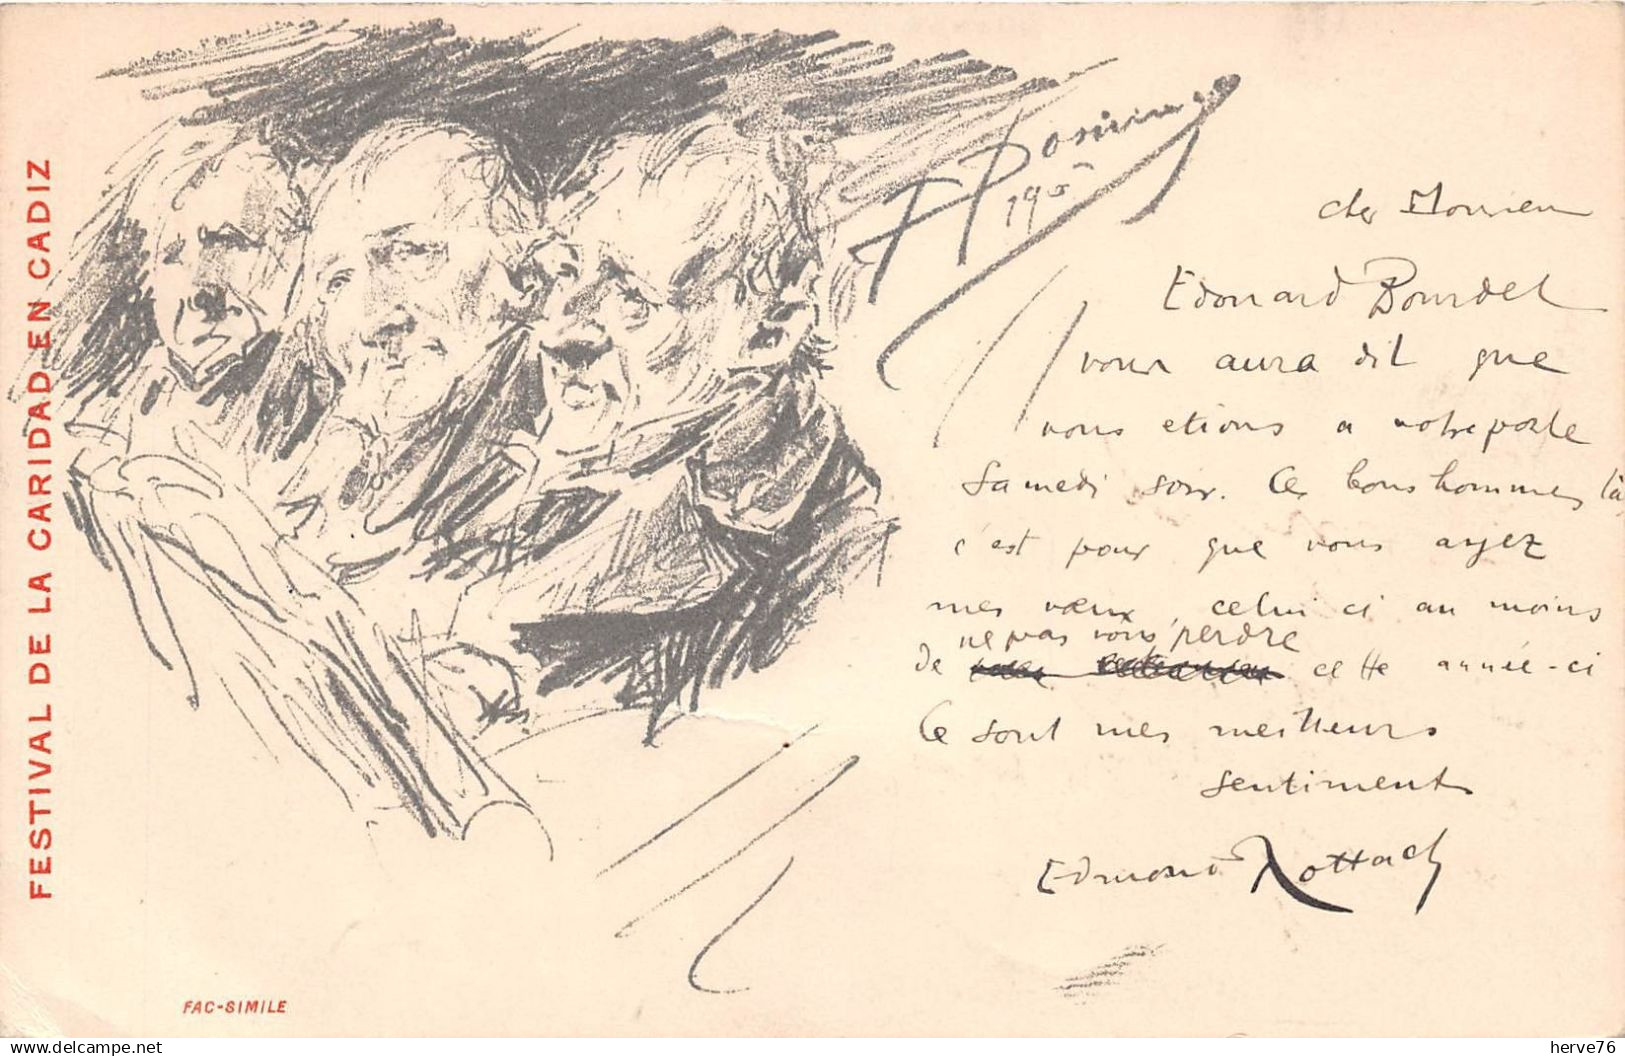 FESTIVAL DE LA CARIDAD EN CADIZ
F Domingo
1905
cher Monsieur
Edouard Bourdet
vous aura dit que
nous etions a votre porte
Samedi soir. Ces bons hommes là
c'est pour que vous ayez
mes vœux, celui ci au moins
ne pas vous perdre
de cette année-ci
Ce sont mes meilleurs
sentiments
Edmond Rottach
FAC-SIMILE
delcampe.net
herve76